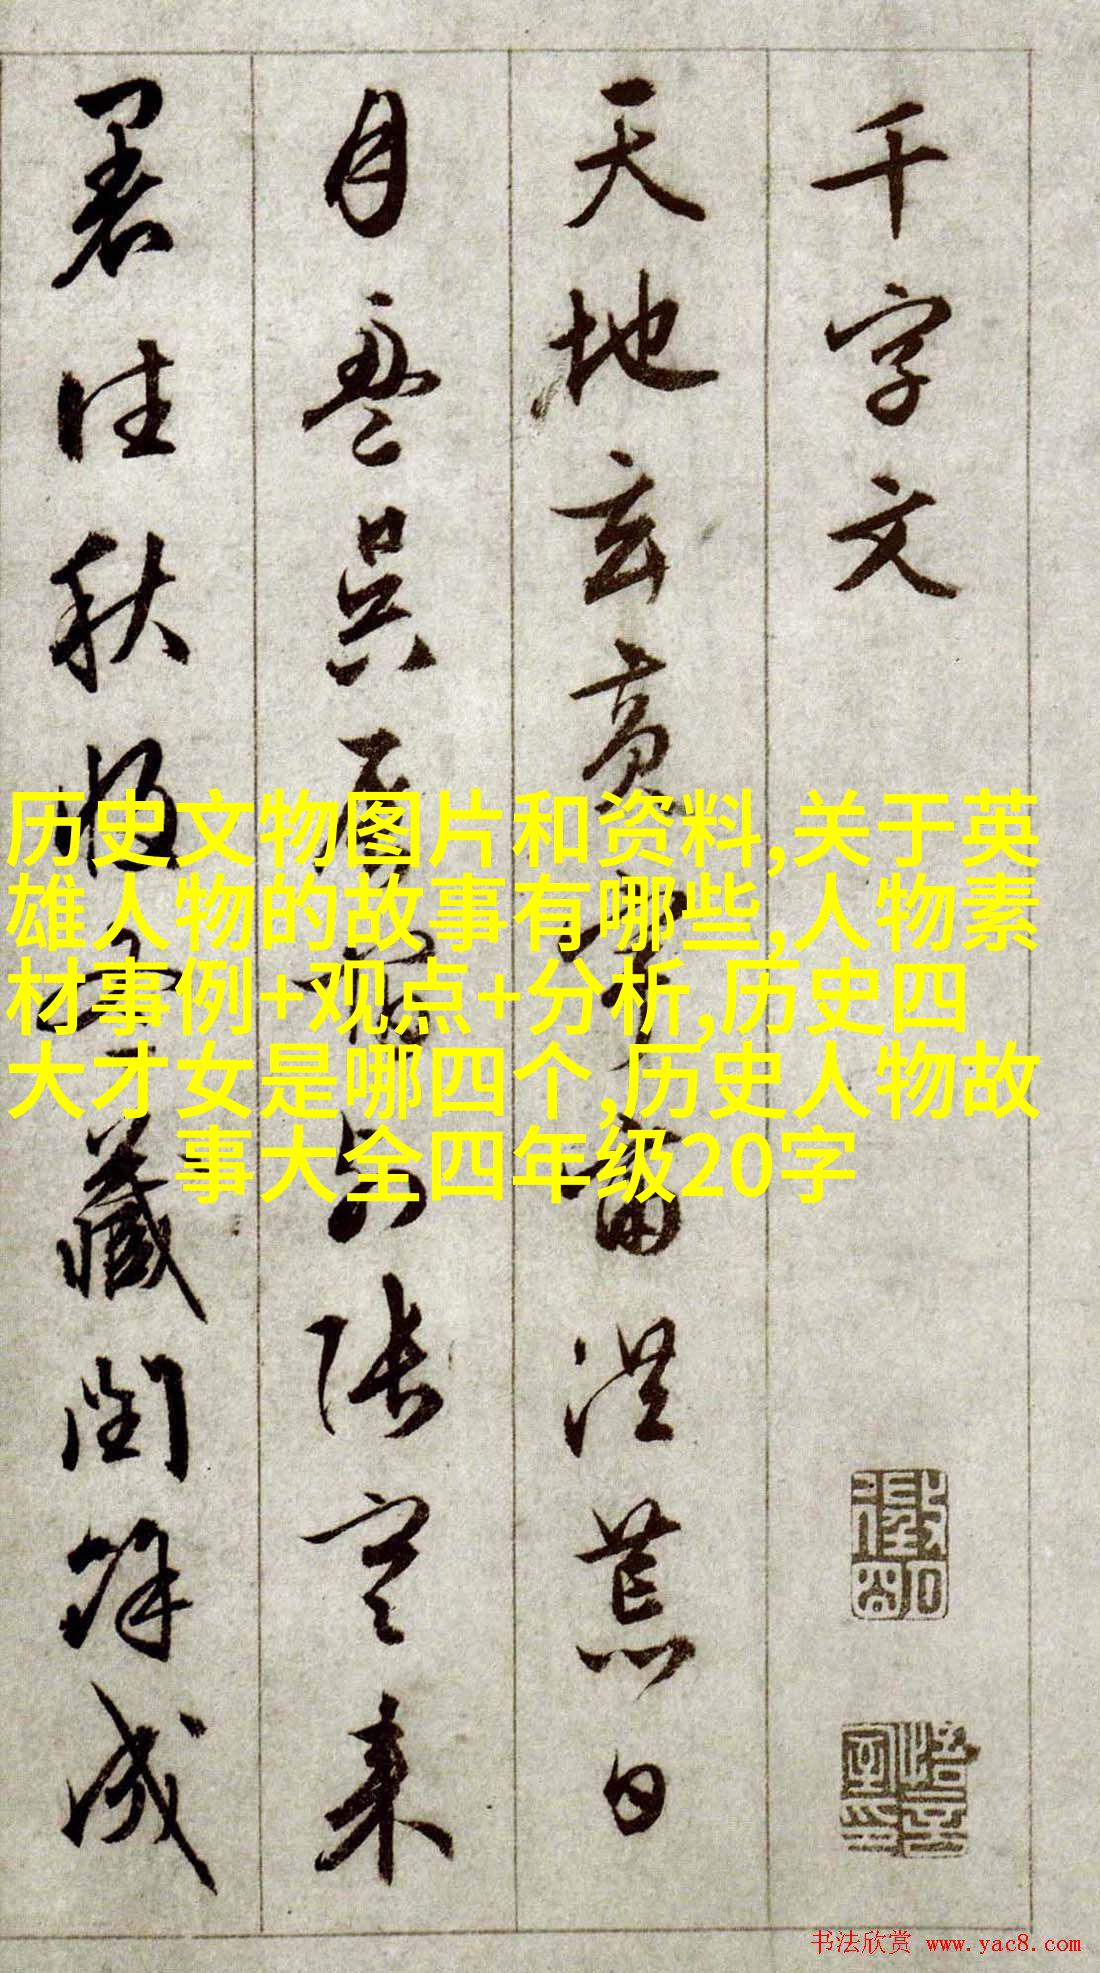 千字文
天地玄黄宇宙洪荒日
月盈昃辰宿列张寒来
暑往秋收冬藏闰馀成
历史文物图片和资料,关于英
雄人物的故事有哪些,人物素
材事例+观点+分析,历史四
大才女是哪四个,历史人物故
事大全四年级20字
书法欣赏 www.yac8.com